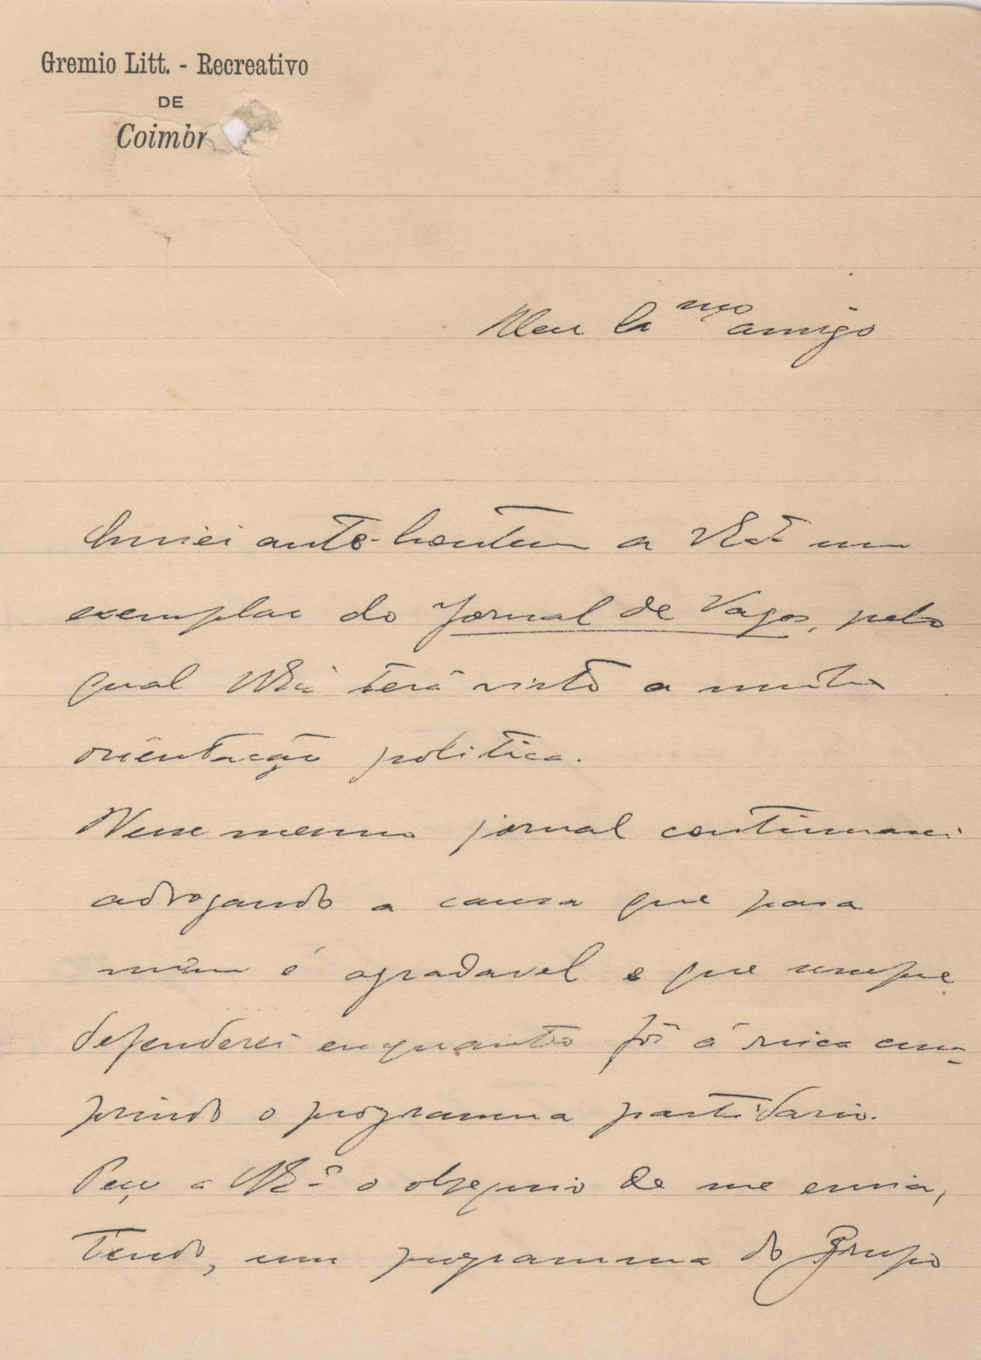 Gremio Litt. - Recreativo
DE
Coimbr
Meu amigo
Enviei ante-hontem a V Exª um
exemplar do Jornal de Vagos, pelo
qual V Exª terá visto a minha
orientação politica.
Nesse mesmo jornal continuarei
advogando a causa que para
mim é agradavel e que sempre
defenderei enquanto fôr á risca cum-
prindo o programma partidario.
Peço a V Exª o obsequio de me enviar,
tendo, um programma do Grupo